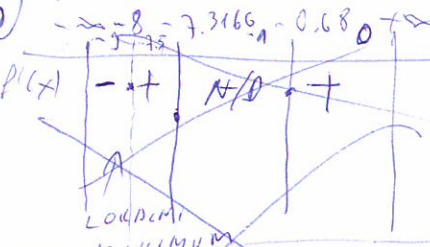 - ∞ - 8 - 7.3166 - 0.68 + ∞
- 9 - 7.5 - 1 0
f'(x) - + N/D +
LOKALNI